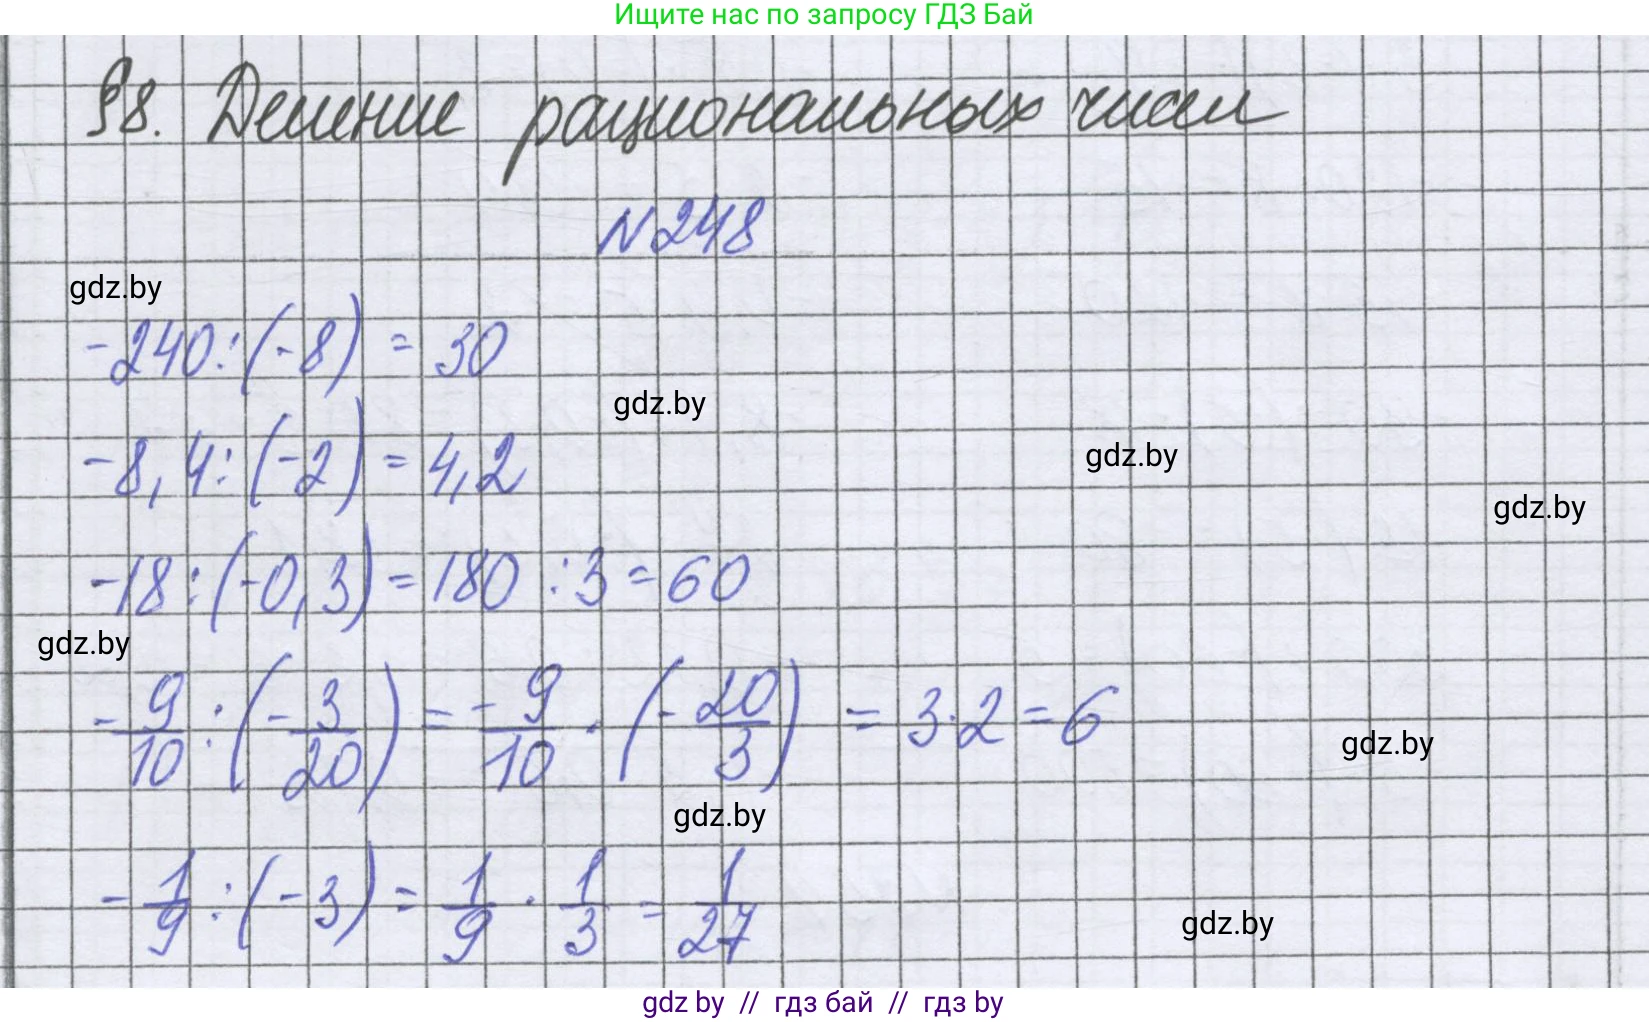 Ищите нас по запросу ГДЗ Бай
§8. Деление рациональных чисел
N248
gdz.by
-240:(-8) = 30
gdz.by
-8,4:(-2) = 4,2
gdz.by
gdz.by
-18:(-0,3) = 180:3 = 60
gdz.by
-9/10:(-3/20) = -9/10·(-20/3) = 3·2 = 6
gdz.by
gdz.by
-1/9:(-3) = 1/9·1/3 = 1/27
gdz.by
gdz by // гдз бай // гдз by